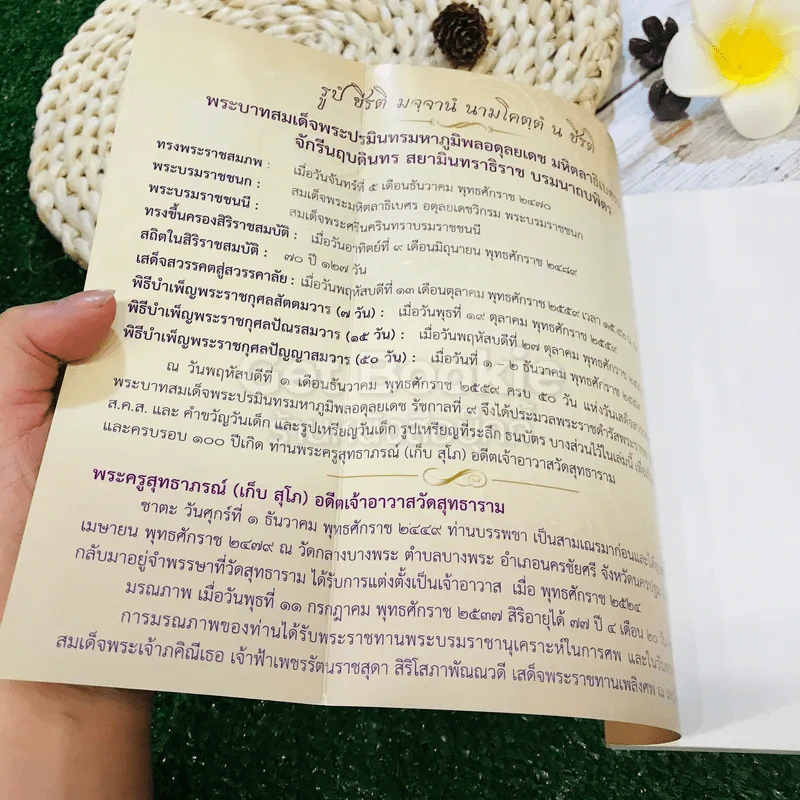 รูปํ ชีรติ มจฺจานํ นามโคตฺตํ น ชีรติ
พระบาทสมเด็จพระปรมินทรมหาภูมิพลอดุลยเดช มหิตลาธิเบศร
จักรีนฤบดินทร สยามินทราธิราช บรมนาถบพิตร
ทรงพระราชสมภพ : เมื่อวันจันทร์ที่ ๕ เดือนธันวาคม พุทธศักราช ๒๔๗๐
พระบรมราชชนก : สมเด็จพระมหิตลาธิเบศร อดุลยเดชวิกรม พระบรมราชชนก
พระบรมราชชนนี : สมเด็จพระศรีนครินทราบรมราชชนนี
ทรงขึ้นครองสิริราชสมบัติ : เมื่อวันอาทิตย์ที่ ๙ เดือนมิถุนายน พุทธศักราช ๒๔๘๙
สถิตในสิริราชสมบัติ : ๗๐ ปี ๑๒๗ วัน
เสด็จสวรรคตสู่สวรรคาลัย : เมื่อวันพฤหัสบดีที่ ๑๓ เดือนตุลาคม พุทธศักราช ๒๕๕๙ เวลา ๑๕.๕๒
พิธีบำเพ็ญพระราชกุศลสัตตมวาร (๗ วัน) : เมื่อวันพุธที่ ๑๙ ตุลาคม พุทธศักราช ๒๕๕๙
พิธีบำเพ็ญพระราชกุศลปัณรสมวาร (๑๕ วัน) : เมื่อวันพฤหัสบดีที่ ๒๗ ตุลาคม พุทธศักราช
พิธีบำเพ็ญพระราชกุศลปัญญาสมวาร (๕๐ วัน) : เมื่อวันที่ ๑ - ๒ ธันวาคม พุทธศักราช
ณ วันพฤหัสบดีที่ ๑ เดือนธันวาคม พุทธศักราช ๒๕๕๙ ครบ ๕๐ วัน แห่งวันเสด็จสวรรคต
พระบาทสมเด็จพระปรมินทรมหาภูมิพลอดุลยเดช รัชกาลที่ ๙ จึงได้ประมวลพระราชดำรัสพระราชทาน
ส.ค.ส. และ คำขวัญวันเด็ก และรูปเหรียญวันเด็ก รูปเหรียญที่ระลึก ธนบัตร บางส่วนไว้ในเล่มนี้
และครบรอบ ๑๐๐ ปีเกิด ท่านพระครูสุทธาภรณ์ (เก็บ สุโภ) อดีตเจ้าอาวาสวัดสุทธาราม
พระครูสุทธาภรณ์ (เก็บ สุโภ) อดีตเจ้าอาวาสวัดสุทธาราม
ชาตะ วันศุกร์ที่ ๑ ธันวาคม พุทธศักราช ๒๔๕๙ ท่านบรรพชา เป็นสามเณรมาก่อนและได้
เมษายน พุทธศักราช ๒๔๗๙ ณ วัดกลางบางพระ ตำบลบางพระ อำเภอนครชัยศรี จังหวัดนครปฐม
กลับมาอยู่จำพรรษาที่วัดสุทธาราม ได้รับการแต่งตั้งเป็นเจ้าอาวาส เมื่อ พุทธศักราช ๒๕๒๔
มรณภาพ เมื่อวันพุธที่ ๑๑ กรกฎาคม พุทธศักราช ๒๕๓๗ สิริอายุได้ ๗๗ ปี ๔ เดือน ๒๐ วัน
การมรณภาพของท่านได้รับพระราชทานพระบรมราชานุเคราะห์ในการศพ และในวัน
สมเด็จพระเจ้าภคินีเธอ เจ้าฟ้าเพชรรัตนราชสุดา สิริโสภาพัณณวดี เสด็จพระราชทานเพลิงศพ ณ
Get Bookie